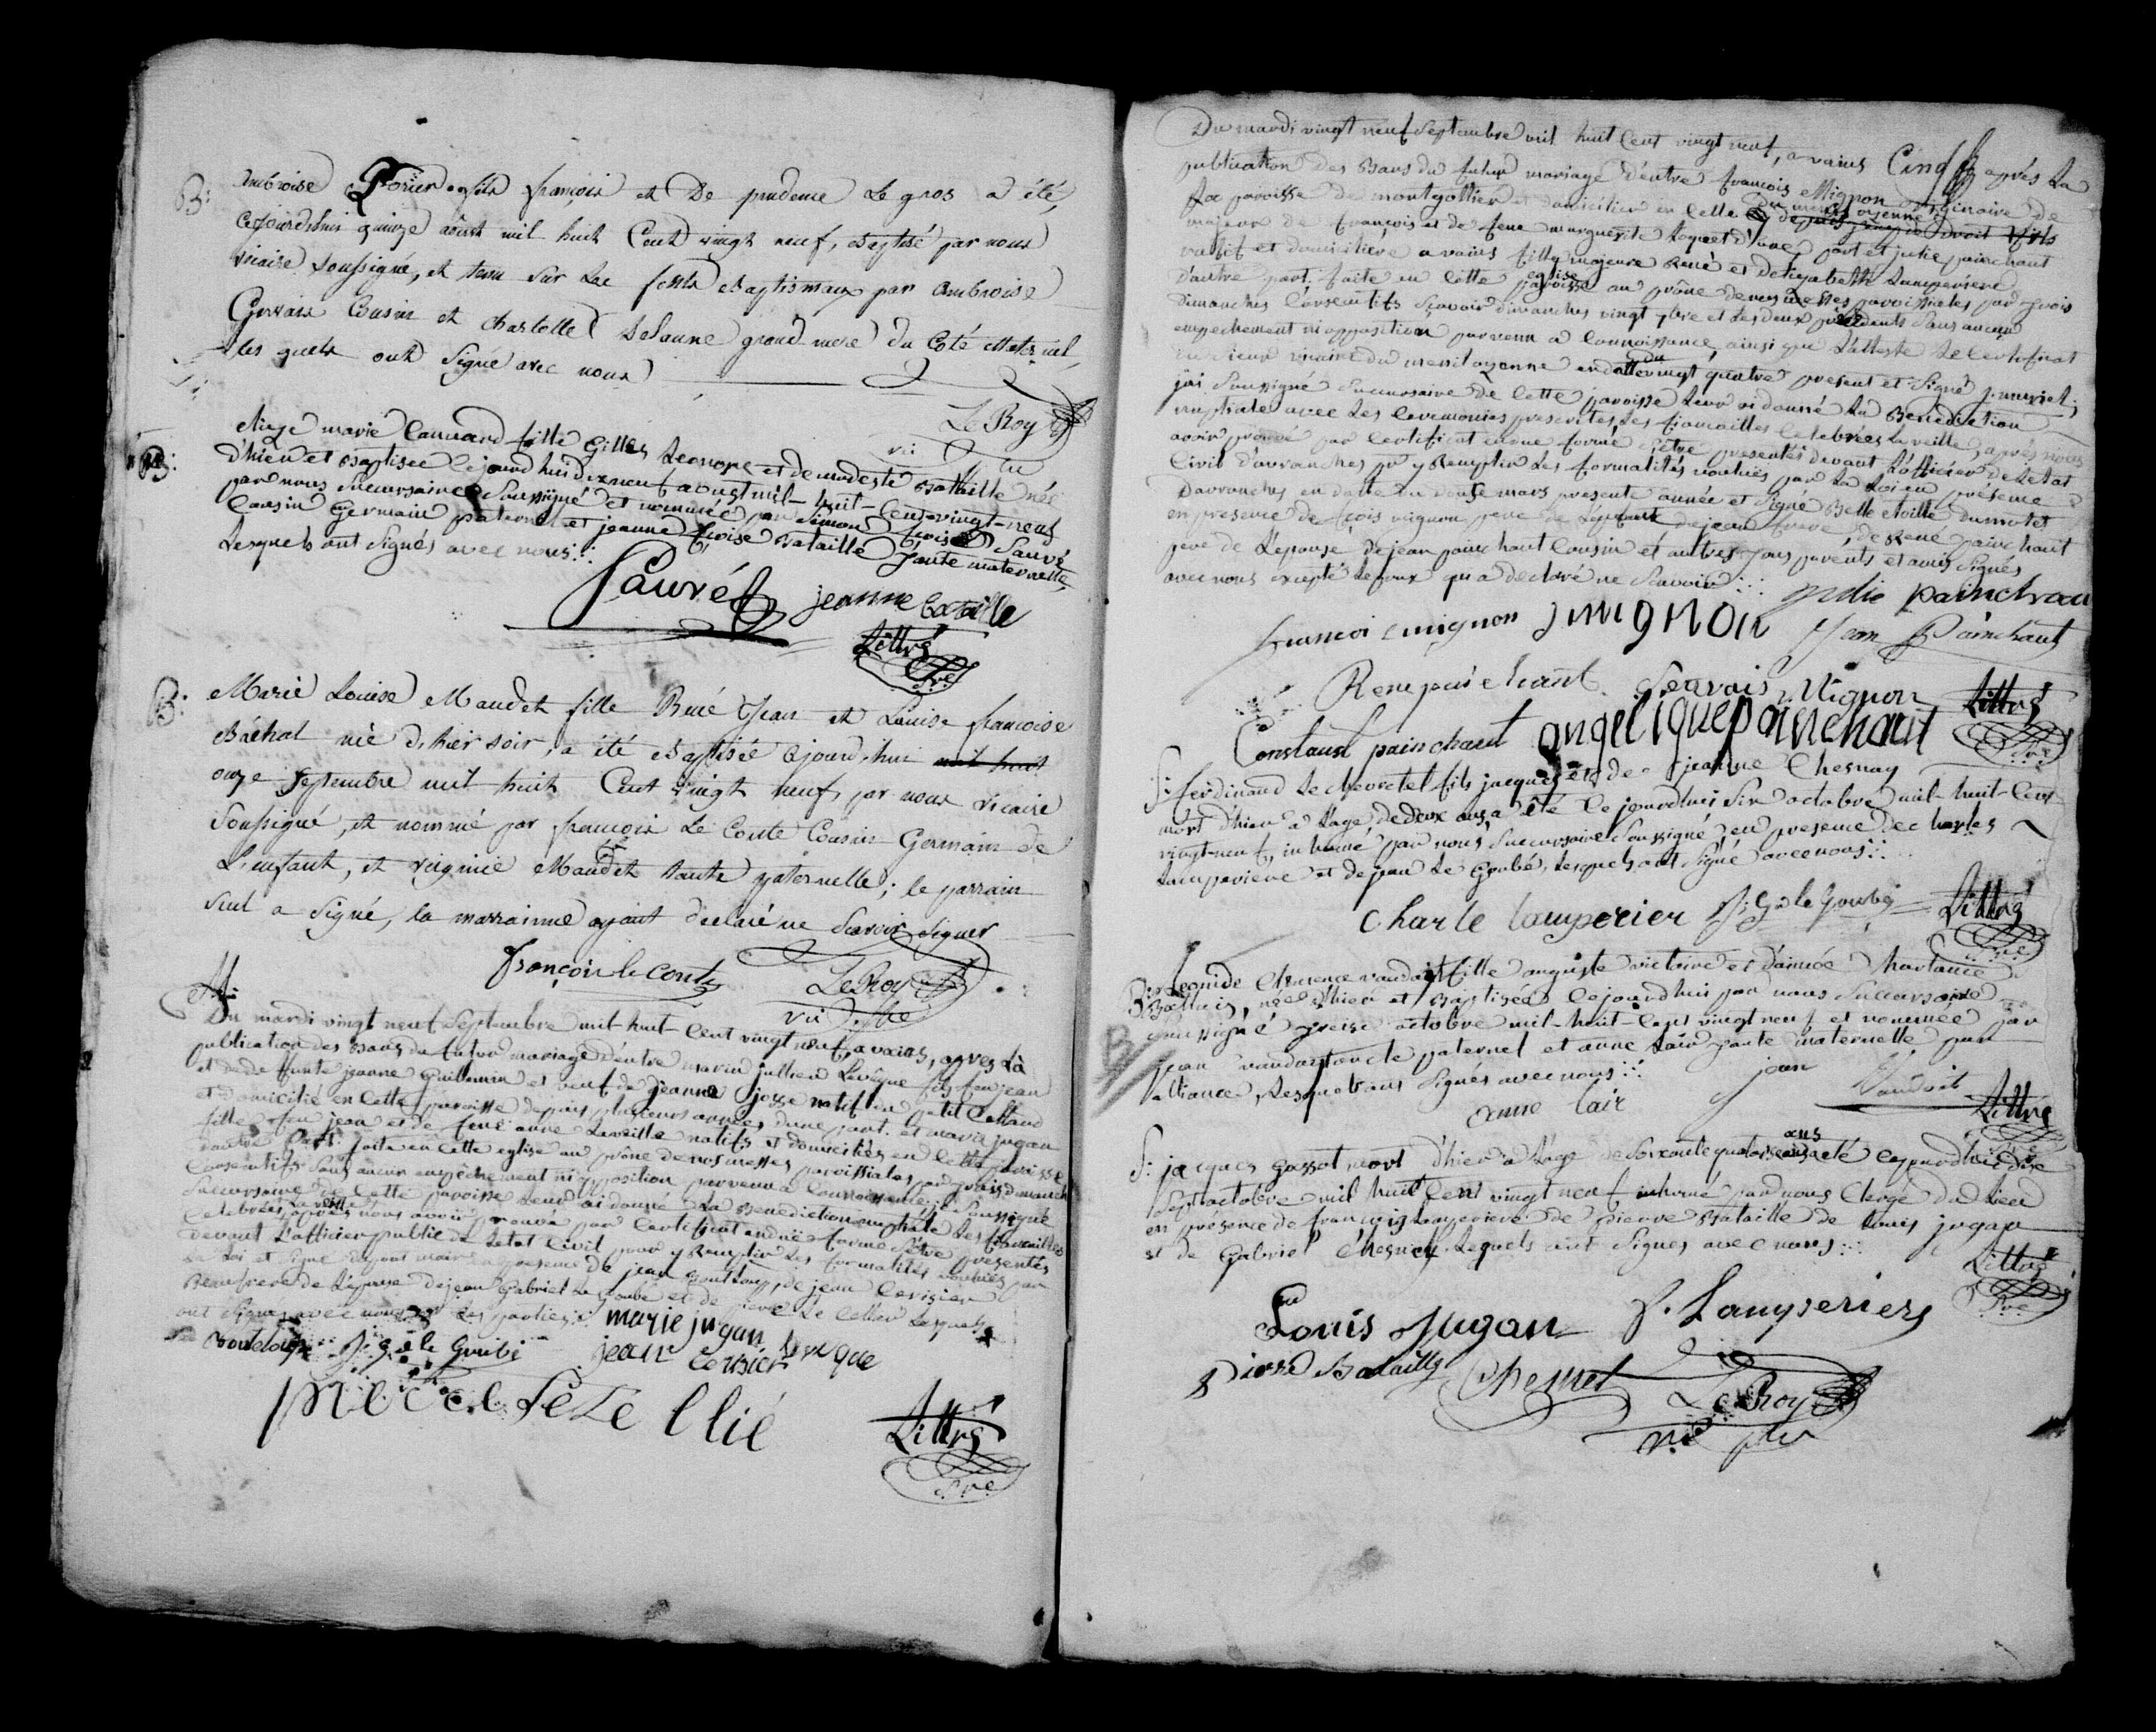 B: ambroise Porier fils françois et De prudence Le gros a été,
cejourdhui quinze août mil huit Cent vingt neuf, Baptisé par nous
vicaire soussigné, et tenu sur Les fonts Baptismaux par Ambroise
Gervais Cousin et charlotte Delaune grand mere du Coté Maternel
les quels ont signé avec nous
LeRoy
vic
B: marie Couuard fille Gilles Leonore et de modeste Bataille née
d'hier et Baptisée cejourdhui dixneuf aoust mil-huit-Cent-vingt-neuf
par nous Succursaire Soussigné et nommée par Simon fçois Sauvé
Cousin Germain paternel et jeanne fçoise Bataille Tante maternelle
Lesquels ont signés avec nous
Sauvé jeanne bataille
Littré
B: Marie Louise Maudet fille René Jean et Louise françoise
née d'hier soir, a été Baptisée cejourd'hui mil huit
onze Septembre mil huit Cent vingt neuf, par nous vicaire
Soussigné, et nommé par françois Le Conte Cousin Germain de
L'enfant, et virginie Maudet tante paternelle; le parrain
seul a signé, la marrainne ayant declaré ne Savoir Signer
françois le conte LeRoy
vic
Du mardi vingt neuf Septembre mil-huit-Cent vingt neuf, a vains, apres La
publication des Bans du futur mariage d'entre marin jullien Levêque fils feu jean
et de deffunte jeanne Guillemin et veuf de jeanne josse natif du petit Celland
et domicilié en Cette paroisse depuis plusieurs années d'une part. et marie jugan
fille feu jean et de feue anne Leveillé natifs et domiciliés en Cette paroisse
d'autre Part. faite en Cette eglise au prône de nos messes paroissiales par trois dimanch
Consecutifs Sans aucun empêchement ni opposition parvenu a Connoissance. je Soussigné
Succursaire de Cette paroisse Leur ai donné La Benediction nuptiale Les fiancailles
Celebrées La veille, après nous avoir prouvé par Certificat en due forme s'être presentés
devant L'officier public de L'etat Civil pour y Remplir Les formalités voulues par
La Loi et signé maire en presence de jean Bouteloup, de jean Cerisier
Beaufrere de L'épouse de jean Gabriel Le Goubé et de pierre Le Cellier Lesquels
ont Signés avec nous et Les parties: marie jugan leveque
Bouteloup J. g. le Goubé jean Cerisier
Littré
Du mardi vingt neuf Septembre mil huit Cent vingt neuf, a vains Cinq après La
publication des Bans du futur mariage d'entre francois Mignon originaire de
La paroisse de montgothier et domicilier en Celle du mesnil ozenne
majeur de François et de feue marguerite Loquet d'une part et julie painchaut
native et domiciliere a vains fille majeure René et delizabeth Lamperiere
d'autre part. faite en Cette eglise paroisse au prône de nos messes paroissiales par trois
dimanches Consecutifs Scavoir dimanches vingt 7bre et Les deux précédents Sans aucun
empechement ni opposition parvenu a Connoissance, ainsi que L'atteste Le Certificat
du vicaire du mesnil ozenne en datte du vingt quatre present et Signé
jai Soussigné Succursaire de Cette paroisse Leur ai donné La Benediction
nuptiale avec Les Ceremonies prescrites, Les fiancailles Celebrées La veille, après nous
avoir prouvé par Certificat en due forme s'être presentés devant L'officier de L'etat
Civil d'avranches pr y Remplir Les formalités voulues par La Loi en présence
D'avranches en datte du douse mars presente année et signé Belle etoille dumotet
en presence de fçois mignon pere de L'epoux de jean frere, de Rene painchaut
pere de L'epouse de jean painchaut Cousin et autres tous parents et amis Signés
avec nous excepté Lepoux qui a declaré ne Scavoir julie painchau
francoi mignon J mignon Jean Painchaut
Rene painchaut. Gervais Mignon Littré
Constant painchaut angelique painchaut
S: ferdinand Le chevretel fils jacques et de jeanne Chesnay
mort d'hier a L'age de deux ans a été Cejourdhui Six octobre mil-huit-Cent
vingt-neuf, inhumé par nous Succursaire Soussigné en presence de charles
Lamperiere et de jean Le Goubé, Lesquels ont Signé avec nous
Charle lamperier J. G. le Goubé Littré
B: Leonide Clemence vaudoit fille auguste victoire et d'aimée hortance
née d'hier et Baptisée Cejourdhui par nous Succursaire
Soussigné treise octobre mil-huit-Cent vingt neuf et nommée par
jean vaudoit oncle paternel et anne Lair tante maternelle par
alliance, Lesquels ont Signés avec nous jean Vaudoit
anne lair Littré
S: jacques gossot mort d'hier a L'age de Soixante quatorse ans a été Cejourdhui dix
Sept octobre mil huit Cent vingt neuf inhumé par nous Clergé du Lieu
en presence de françois Lamperiere de Pierre Bataille de Louis jugan
et de gabriel Chesnel. Lequels ont Signés avec nous
Littré
Louis Jugan f. Lamperiere
Pierre Bataille Chesnel LeRoy
vic